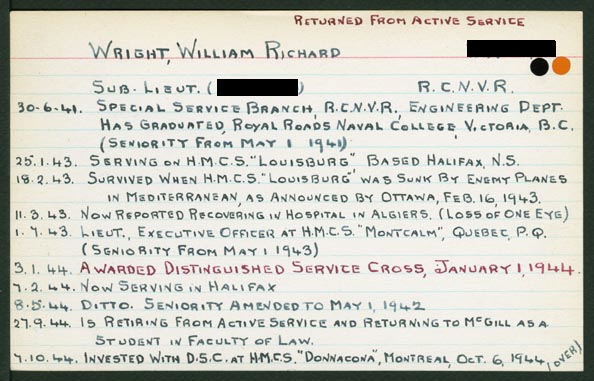 RETURNED FROM ACTIVE SERVICE
WRIGHT, WILLIAM RICHARD
SUB. LIEUT. ( ) R.C.N.V.R.
30-6-41. SPECIAL SERVICE BRANCH, R.C.N.V.R., ENGINEERING DEPT.
HAS GRADUATED, ROYAL ROADS NAVAL COLLEGE, VICTORIA, B.C.
(SENIORITY FROM MAY 1 1941)
25.1.43. SERVING ON H.M.C.S. "LOUISBURG" BASED HALIFAX, N.S.
18.2.43. SURVIVED WHEN H.M.C.S. "LOUISBURG" WAS SUNK BY ENEMY PLANES
IN MEDITERRANEAN, AS ANNOUNCED BY OTTAWA, FEB. 16, 1943.
11.3.43. NOW REPORTED RECOVERING IN HOSPITAL IN ALGIERS. (LOSS OF ONE EYE)
1.7.43. LIEUT., EXECUTIVE OFFICER AT H.M.C.S. "MONTCALM", QUEBEC, P.Q.
(SENIORITY FROM MAY 1 1943)
3.1.44. AWARDED DISTINGUISHED SERVICE CROSS, JANUARY 1, 1944.
7.2.44. NOW SERVING IN HALIFAX
8.5.44. DITTO. SENIORITY AMENDED TO MAY 1, 1942
27.9.44. IS RETIRING FROM ACTIVE SERVICE AND RETURNING TO MCGILL AS A
STUDENT IN FACULTY OF LAW.
7.10.44. INVESTED WITH D.S.C. AT H.M.C.S. "DONNACONA", MONTREAL, OCT. 6, 1944 (OVER)